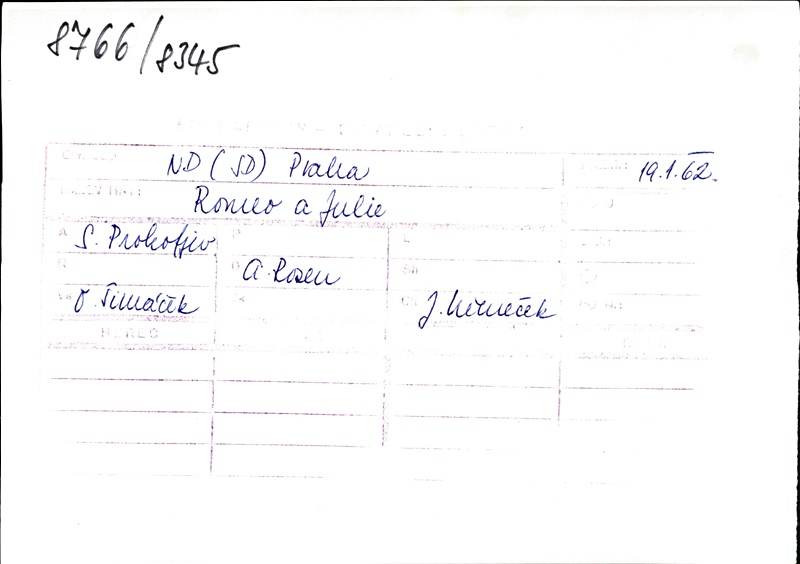 8766/8345
ND (SD) Praha 19.1.62.
Romeo a Julie
S. Prokofjev
A. Rosen
O. Šimáček J. Němeček
HEREC